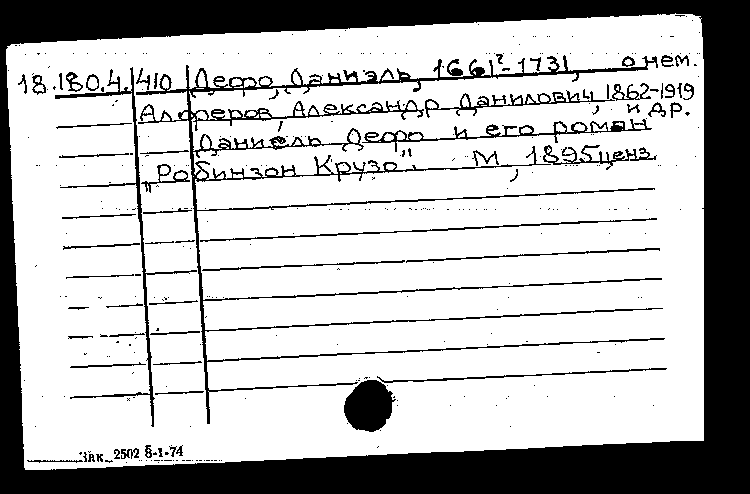 18.180.4.410 Дефо, Даниэль, 1661?-1731, о нем.
Алферов, Александр Данилович, 1862-1919
и др.
Даниель Дефо и его роман
"Робинзон Крузо". М, 1895, ценз.
Зак. 2502 8-1-74